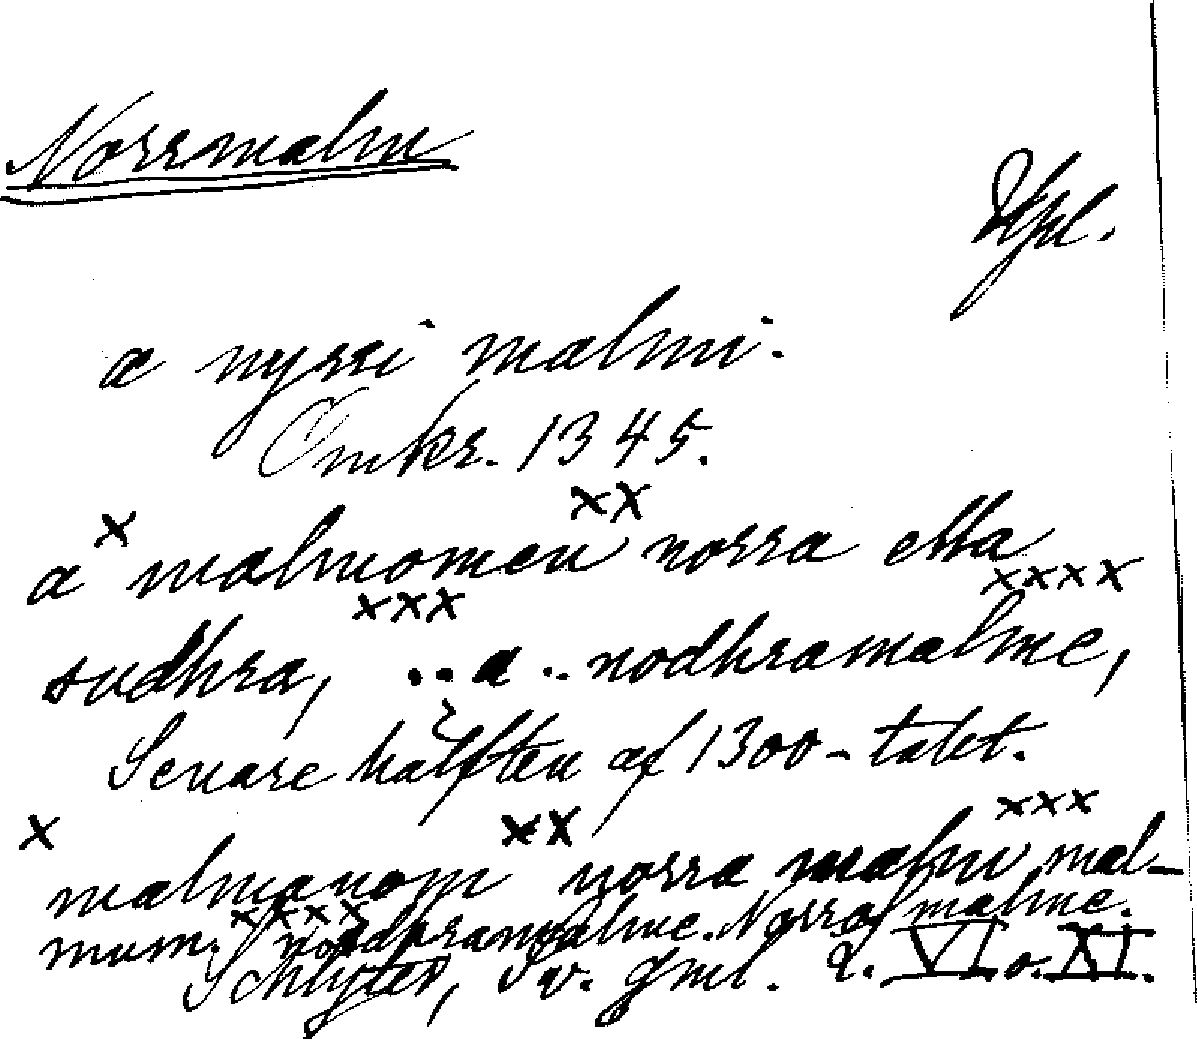 Norrmalm
Upl.
a nyrri malmi.
Omkr. 1345.
x xx
a malmomen norra ella
xxx xxxx
sudhra, ..a.. nodhramalme,
Senare hälften af 1300-talet.
x xx xxx
malmanom norra malm mal-
xxxx
mum; nordhramalme. Norra malme.
Schlyter, Sv. gml. L. VI o. XI.